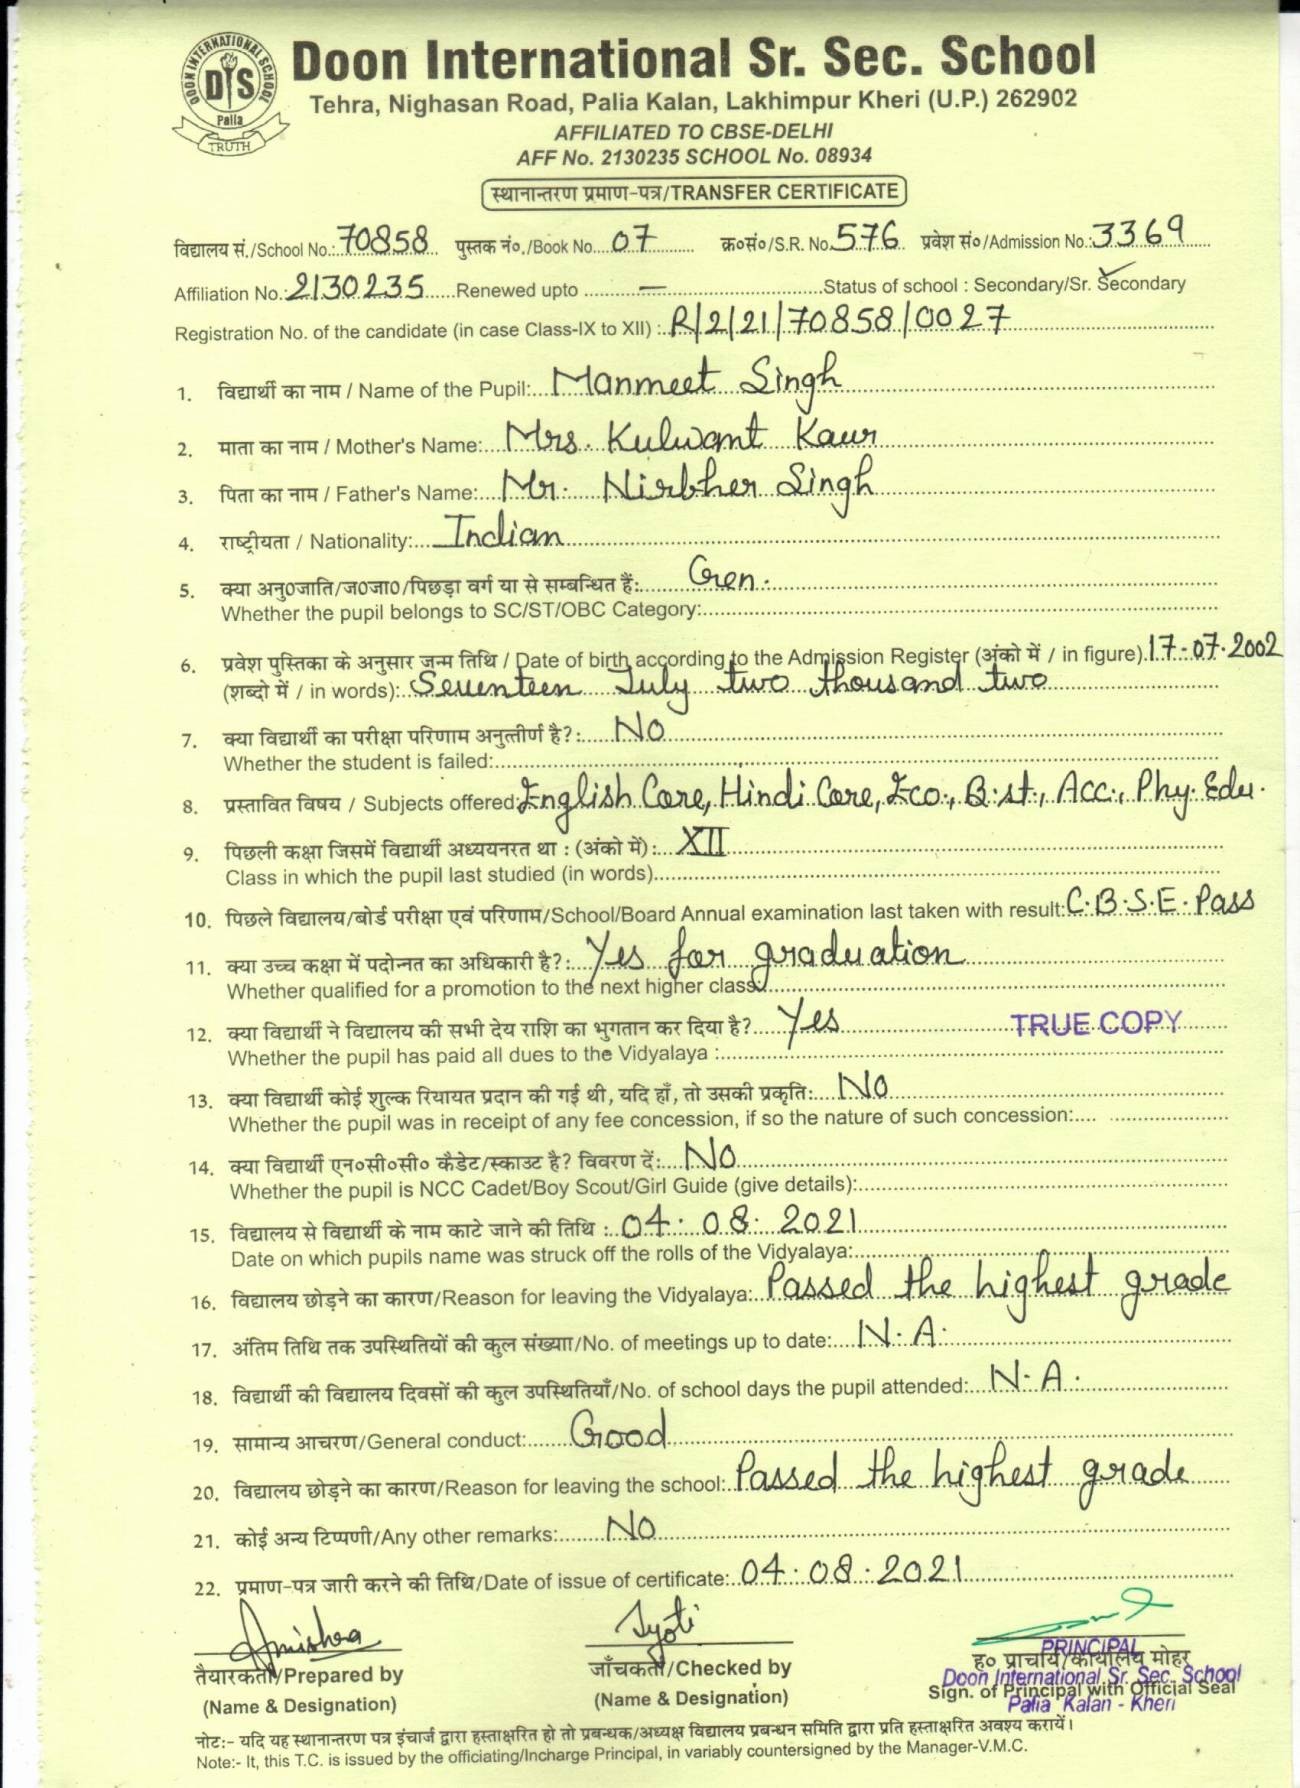 DOON INTERNATIONAL SCHOOL
DIS
Palia
TRUTH
Doon International Sr. Sec. School
Tehra, Nighasan Road, Palia Kalan, Lakhimpur Kheri (U.P.) 262902
AFFILIATED TO CBSE-DELHI
AFF No. 2130235 SCHOOL No. 08934
स्थानान्तरण प्रमाण-पत्र/TRANSFER CERTIFICATE
विद्यालय सं./School No.: 70858 पुस्तक नं०./Book No. 07 क्र०सं०/S.R. No. 576 प्रवेश सं०/Admission No.: 3369
Affiliation No.: 2130235 Renewed upto — Status of school : Secondary/Sr. Secondary
Registration No. of the candidate (in case Class-IX to XII) : R/2/21/70858/0027
1. विद्यार्थी का नाम / Name of the Pupil: Manmeet Singh
2. माता का नाम / Mother's Name: Mrs. Kulwant Kaur
3. पिता का नाम / Father's Name: Mr. Nirbher Singh
4. राष्ट्रीयता / Nationality: Indian
5. क्या अनु०जाति/ज०जा०/पिछड़ा वर्ग या से सम्बन्धित हैं: Gen.
Whether the pupil belongs to SC/ST/OBC Category:
6. प्रवेश पुस्तिका के अनुसार जन्म तिथि / Date of birth according to the Admission Register (अंको में / in figure) 17-07-2002
(शब्दो में / in words): Seventeen July two thousand two
7. क्या विद्यार्थी का परीक्षा परिणाम अनुत्तीर्ण है?: No
Whether the student is failed:
8. प्रस्तावित विषय / Subjects offered: English Core, Hindi Core, Eco., B.st., Acc., Phy. Edu.
9. पिछली कक्षा जिसमें विद्यार्थी अध्ययनरत था : (अंको में) : XII
Class in which the pupil last studied (in words)
10. पिछले विद्यालय/बोर्ड परीक्षा एवं परिणाम/School/Board Annual examination last taken with result: C.B.S.E. Pass
11. क्या उच्च कक्षा में पदोन्नत का अधिकारी है?: Yes for graduation
Whether qualified for a promotion to the next higher class
12. क्या विद्यार्थी ने विद्यालय की सभी देय राशि का भुगतान कर दिया है? Yes TRUE COPY
Whether the pupil has paid all dues to the Vidyalaya :
13. क्या विद्यार्थी कोई शुल्क रियायत प्रदान की गई थी, यदि हाँ, तो उसकी प्रकृति: No
Whether the pupil was in receipt of any fee concession, if so the nature of such concession:
14. क्या विद्यार्थी एन०सी०सी० कैडेट/स्काउट है? विवरण दें: No
Whether the pupil is NCC Cadet/Boy Scout/Girl Guide (give details):
15. विद्यालय से विद्यार्थी के नाम काटे जाने की तिथि : 04. 08. 2021
Date on which pupils name was struck off the rolls of the Vidyalaya:
16. विद्यालय छोड़ने का कारण/Reason for leaving the Vidyalaya: Passed the highest grade
17. अंतिम तिथि तक उपस्थितियों की कुल संख्याा/No. of meetings up to date: N. A.
18. विद्यार्थी की विद्यालय दिवसों की कुल उपस्थितियाँ/No. of school days the pupil attended: N. A.
19. सामान्य आचरण/General conduct: Good
20. विद्यालय छोड़ने का कारण/Reason for leaving the school: Passed the highest grade
21. कोई अन्य टिप्पणी/Any other remarks: No
22. प्रमाण-पत्र जारी करने की तिथि/Date of issue of certificate: 04.08.2021
Jyoti
तैयारकर्ता/Prepared by
(Name & Designation)
जाँचकर्ता/Checked by
(Name & Designation)
PRINCIPAL
ह० प्राचार्य/कार्यालय मोहर
Doon International Sr. Sec. School
Sign. of Principal with Official Seal
Palia Kalan - Kheri
नोट:- यदि यह स्थानान्तरण पत्र इंचार्ज द्वारा हस्ताक्षरित हो तो प्रबन्धक/अध्यक्ष विद्यालय प्रबन्धन समिति द्वारा प्रति हस्ताक्षरित अवश्य करायें।
Note:- It, this T.C. is issued by the officiating/Incharge Principal, in variably countersigned by the Manager-V.M.C.